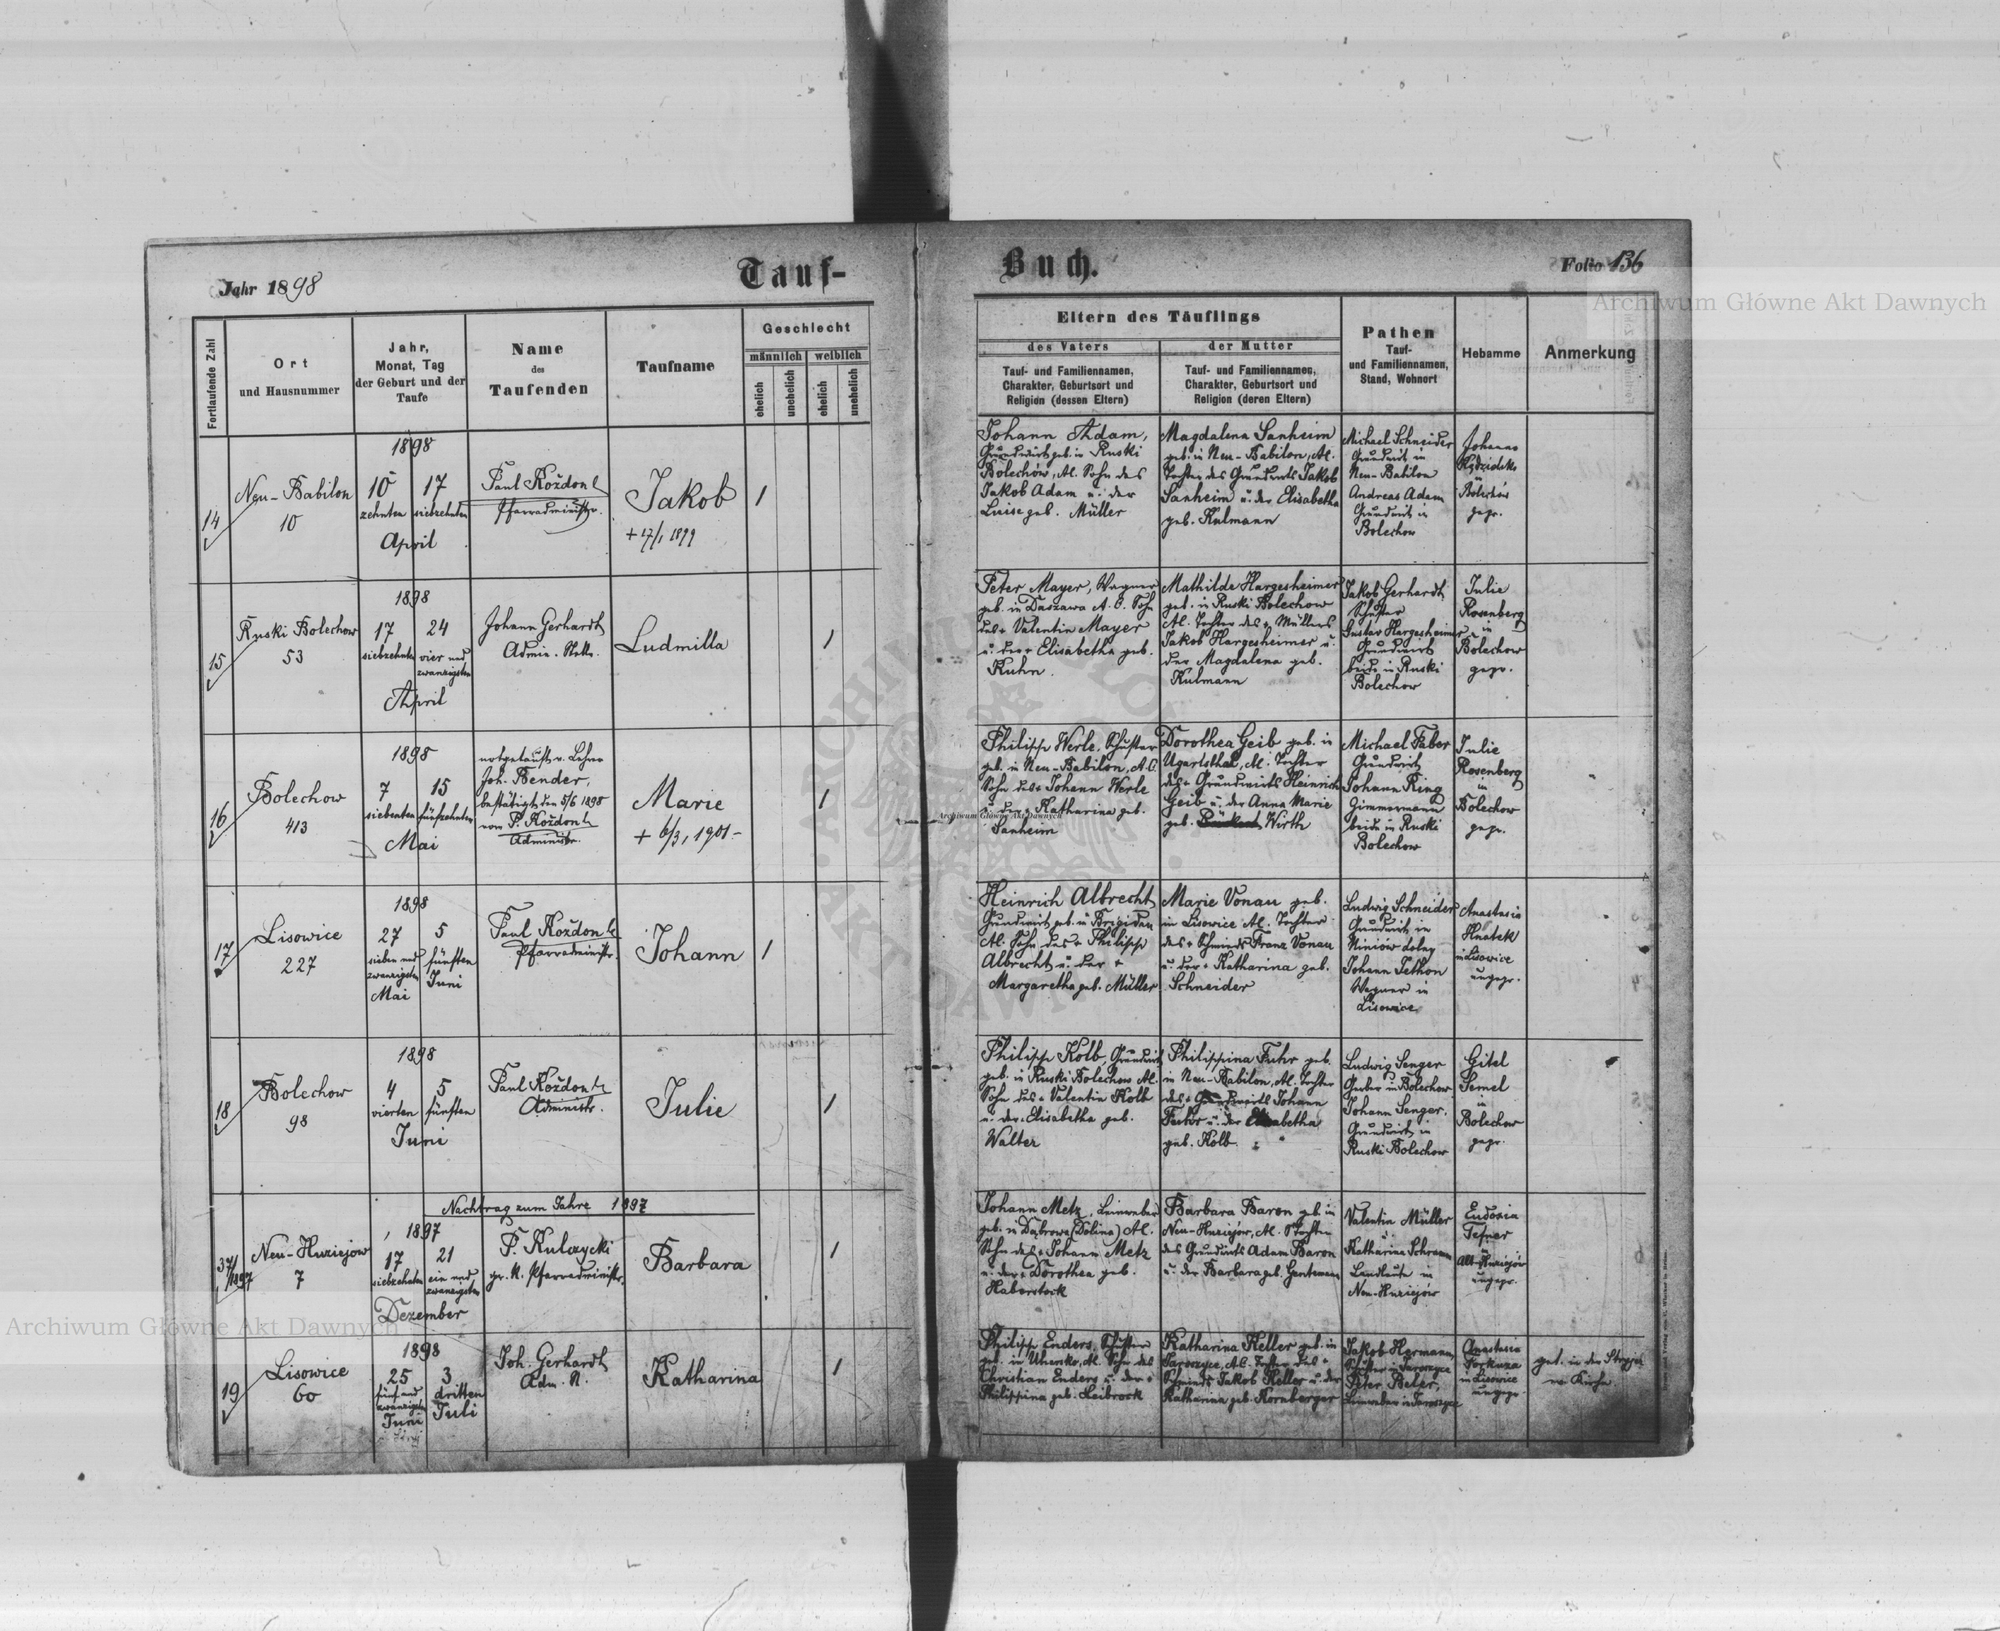 Jahr 1898
Tauf-
Buch.
Folio 136
Archiwum Główne Akt Dawnych
Fortlaufende Zahl
Ort
und Hausnummer
Jahr,
Monat, Tag
der Geburt und der
Taufe
Name
des
Taufenden
Taufname
Geschlecht
männlich
weiblich
ehelich
unehelich
ehelich
unehelich
Eltern des Täuflings
des Vaters
Tauf- und Familiennamen,
Charakter, Geburtsort und
Religion (dessen Eltern)
der Mutter
Tauf- und Familiennamen,
Charakter, Geburtsort und
Religion (deren Eltern)
Pathen
Tauf-
und Familiennamen,
Stand, Wohnort
Hebamme
Anmerkung
14
Neu-Babilon
10
1898
10 17
zehnten siebzehnten
April
Paul Kożdon
Pfarradministr.
Jakob
+ 17/1 1899
1
Johann Adam,
Grundwirt geb. in Ruski
Bolechów, Al. Sohn des
Jakob Adam u. der
Luise geb. Müller
Magdalena Sanheim
geb. in Neu-Babilon, Al.
Tochter des Grundwirts Jakob
Sanheim u. der Elisabetha
geb. Kulmann
Michael Schneider
Grundwirt in
Neu-Babilon
Andreas Adam
Grundwirt in
Bolechow
Johanna
in
Bolechów
gepr.
15
Ruski Bolechow
53
1898
17 24
siebzehnten vier und
zwanzigsten
April
Johann Gerhardt
Admin. Stellv.
Ludmilla
1
Peter Mayer, Wagner
geb. in Daszawa A. C. Sohn
des + Valentin Mayer
u. der + Elisabetha geb.
Kuhn
Mathilde Hargesheimer
geb. in Ruski Bolechow
Al. Tochter des + Müllers
Jakob Hargesheimer u.
der Magdalena geb.
Kulmann
Jakob Gerhardt
Schuster
Gustav Hargesheimer
Grundwirt
beide in Ruski
Bolechow
Julie
Rosenberg
in
Bolechow
gepr.
16
Bolechow
413
1898
7 15
siebenten fünfzehnten
Mai
notgetauft v. Lehrer
Joh. Bender,
bestätigt den 5/6 1898
vom P. Kożdon
Administr.
Marie
+ 6/3, 1901-
1
Philipp Werle, Schuster
geb. in Neu-Babilon, A.C.
Sohn des + Johann Werle
u. der + Katharina geb.
Sanheim
Dorothea Geib geb. in
Ugartsthal, Al. Tochter
des + Grundwirts Heinrich
Geib u. der Anna Marie
geb. Wirth
Michael Faber
Grundwirt
Johann Ring
Zimmermann
beide in Ruski
Bolechow
Julie
Rosenberg
in
Bolechow
gepr.
Archiwum Główne Akt Dawnych
17
Lisowice
227
1898
27 5
sieben und fünften
zwanzigsten Juni
Mai
Paul Kożdon
Pfarradministr.
Johann
1
Heinrich Albrecht
Grundwirt geb. in Brigidau
Al. Sohn des + Philipp
Albrecht u. der +
Margaretha geb. Müller
Marie Vonau geb.
in Lisowice Al. Tochter
des + Schmieds Franz Vonau
u. der + Katharina geb.
Schneider
Ludwig Schneider
Grundwirt in
Niniów dolny
Johann Tethon
Wagner in
Lisowice
Anastasia
Hnatek
in Lisowice
ungepr.
18
Bolechow
98
1898
4 5
vierten fünften
Juni
Paul Kożdon
Administr.
Julie
1
Philipp Kolb, Grundwirt
geb. in Ruski Bolechow Al.
Sohn des + Valentin Kolb
u. der Elisabetha geb.
Walter
Philippina Fuhr geb.
in Neu-Babilon, Al. Tochter
des + Grundwirts Johann
u. der Elisabetha
geb. Kolb.
Ludwig Senger
in Bolechow
Johann Senger,
Grundwirt in
Ruski Bolechow
Gitel
Semel
in
Bolechow
gepr.
Nachtrag zum Jahre 1897
37/1897
Neu-Huziejow
7
1897
17 21
siebzehnten ein und
zwanzigsten
Dezember
P. Kulczycki
gr. K. Pfarradministr.
Barbara
1
Johann Metz, Leinweber
geb. in Dąbrowa (Dolina) Al.
Sohn des + Johann Metz
u. der + Dorothea geb.
Haberstock
Barbara Baron geb. in
Neu-Huziejów, Al. Tochter
des Grundwirts Adam Baron
u. der Barbara geb. Genteman
Valentin Müller
u.
Katharina Schramm
Landleute in
Neu-Huziejów
Eudoxia
Tesner
in
Alt-Huziejów
ungepr.
19
Lisowice
60
1898
25 3
fünf und dritten
zwanzigsten Juli
Juni
Joh. Gerhardt
Adm. St.
Katharina
1
Philipp Enders, Schuster
geb. in Uhersko, Al. Sohn des
Christian Enders u. der +
Philippina geb. Leibrock
Katharina Keller geb. in
Jaroszyce, A.C. Tochter des +
Schmieds Jakob Keller u. der
Katharina geb. Kornberger
Jakob Hermann,
Schuster in Jaroszyce
Peter Beler,
Leinweber in Jaroszyce
Anastasia
in Lisowice
ungepr.
get. in der Stryjer
Kirche.
Archiwum Główne Akt Dawnych